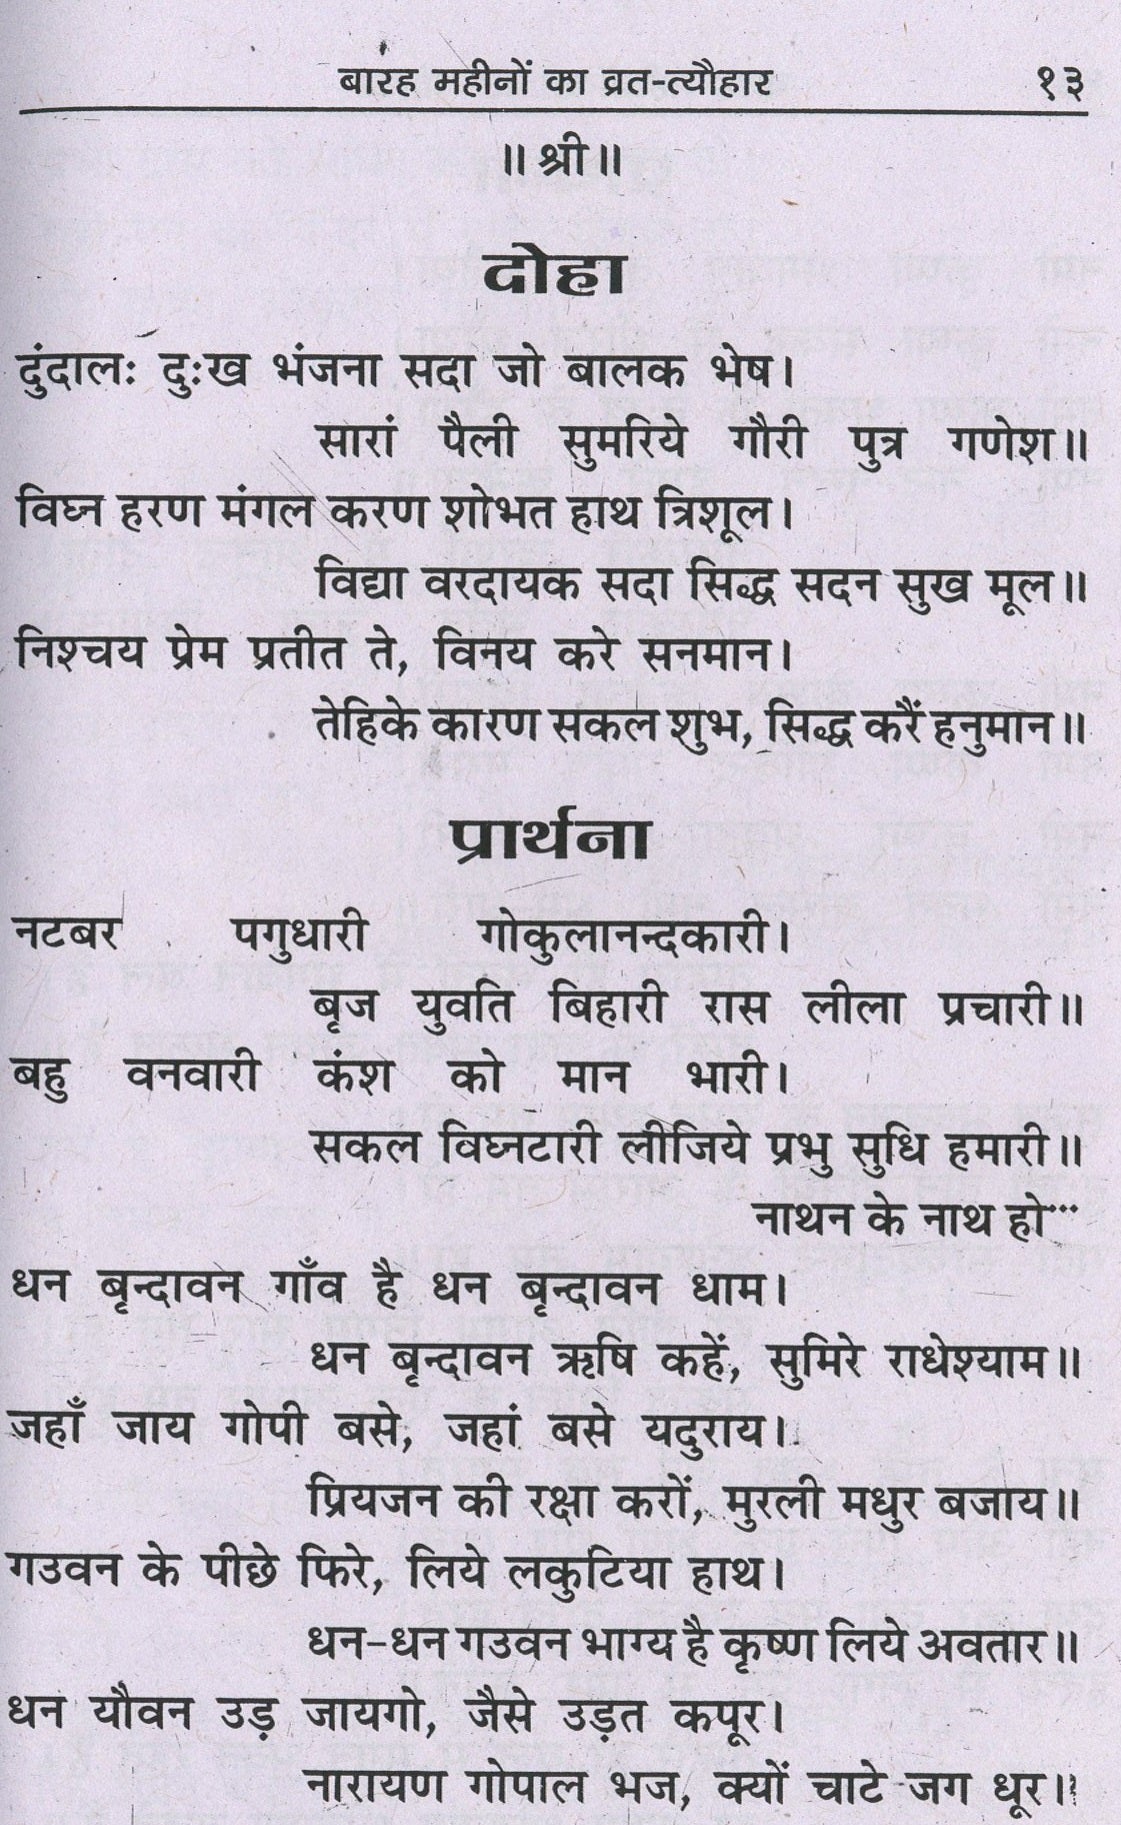 बारह महीनों का व्रत-त्यौहार १३
॥ श्री ॥
दोहा
दुंदालः दुःख भंजना सदा जो बालक भेष।
सारां पैली सुमरिये गौरी पुत्र गणेश॥
विघ्न हरण मंगल करण शोभत हाथ त्रिशूल।
विद्या वरदायक सदा सिद्ध सदन सुख मूल॥
निश्चय प्रेम प्रतीत ते, विनय करे सनमान।
तेहिके कारण सकल शुभ, सिद्ध करैं हनुमान॥
प्रार्थना
नटबर पगुधारी गोकुलानन्दकारी।
बृज युवति बिहारी रास लीला प्रचारी॥
बहु वनवारी कंश को मान भारी।
सकल विघ्नटारी लीजिये प्रभु सुधि हमारी॥
नाथन के नाथ हो···
धन बृन्दावन गाँव है धन बृन्दावन धाम।
धन बृन्दावन ऋषि कहें, सुमिरे राधेश्याम॥
जहाँ जाय गोपी बसे, जहां बसे यदुराय।
प्रियजन की रक्षा करों, मुरली मधुर बजाय॥
गउवन के पीछे फिरे, लिये लकुटिया हाथ।
धन-धन गउवन भाग्य है कृष्ण लिये अवतार॥
धन यौवन उड़ जायगो, जैसे उड़त कपूर।
नारायण गोपाल भज, क्यों चाटे जग धूर॥